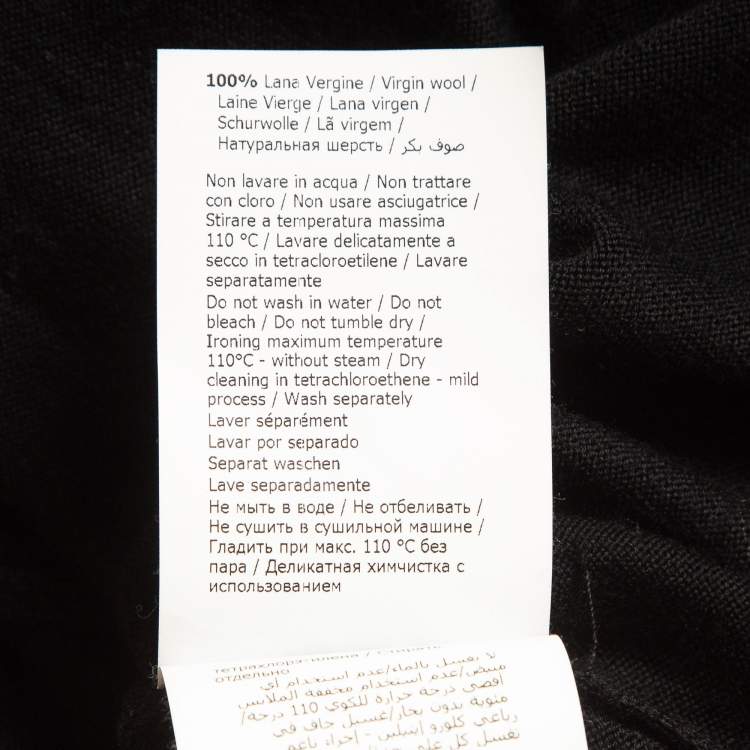 100% Lana Vergine / Virgin wool /
Laine Vierge / Lana virgen /
Schurwolle / Lã virgem /
Натуральная шерсть / صوف بكر
Non lavare in acqua / Non trattare
con cloro / Non usare asciugatrice /
Stirare a temperatura massima
110 °C / Lavare delicatamente a
secco in tetracloroetilene / Lavare
separatamente
Do not wash in water / Do not
bleach / Do not tumble dry /
Ironing maximum temperature
110°C - without steam / Dry
cleaning in tetrachloroethene - mild
process / Wash separately
Laver séparément
Lavar por separado
Separat waschen
Lave separadamente
Не мыть в воде / Не отбеливать /
Не сушить в сушильной машине /
Гладить при макс. 110 °C без
пара / Деликатная химчистка с
использованием
отдельно
لا تغسيل بالماء/عدم استخدام أي
مبيض/عدم استخدام مجففة الملابس
أقصى درجة حرارة للكوي 110 درجة/
مئوية بدون بخار/غسيل جاف في